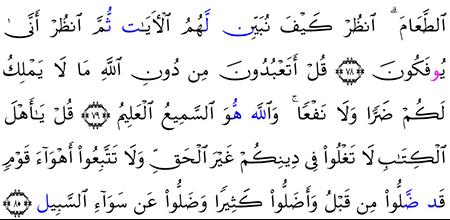 اَ۬لطَّعَامَۖ اَ۟نظُرْ كَيْفَ نُبَيِّنُ لَهُمُ اُ۬لْأَيَٰتِ ثُمَّ اَ۟نظُرْ أَنّ۪يٰ
يُوفَكُونَ ۝٧٨ قُلْ أَتَعْبُدُونَ مِن دُونِ اِ۬للَّهِ مَا لَا يَمْلِكُ
لَكُمْ ضَرّاً وَلَا نَفْعاًۚ وَاللَّه هُّوَ اَ۬لسَّمِيعُ اُ۬لْعَلِيمُ ۝٧٩ قُلْ يَٰأَهْلَ
اَ۬لْكِتَٰبِ لَا تَغْلُواْ فِي دِينِكُمْ غَيْرَ اَ۬لْحَقِّ وَلَا تَتَّبِعُواْ أَهْوَآءَ قَوْمٍ
قَد ضَّلُّواْ مِن قَبْلُ وَأَضَلُّواْ كَثِيراً وَضَلُّواْ عَن سَوَآءِ اِ۬لسَّبِيلِ ۝٨٠